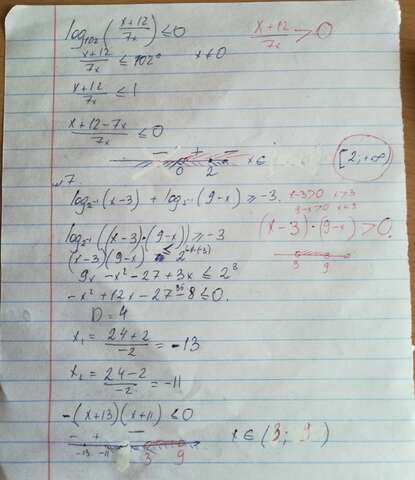 log₁₀₂ ((x+12)/7x) ≤ 0   (x+12)/7x > 0
(x+12)/7x ≤ 102⁰   x≠0
(x+12)/7x ≤ 1
(x+12-7x)/7x ≤ 0
- + - 0 2 x∈ [2,+∞)
7
log₂₋₁(x-3) + log₂₋₁(9-x) ≥ -3. x-3>0 x>3
log₂₋₁((x-3)·(9-x)) ≥ -3 (x-3)·(9-x) > 0.
(x-3)(9-x) ≤ 2
3 9
9x -x² -27+3x ≤ 2³
-x² +12x -27-8≤0.
D = 4
x₁ = (24+2)/-2 = -13
x₂ = (24-2)/-2 = -11
-(x+13)(x+11) ≤ 0
- + - -13 -11 3 9 x∈(3; 9)